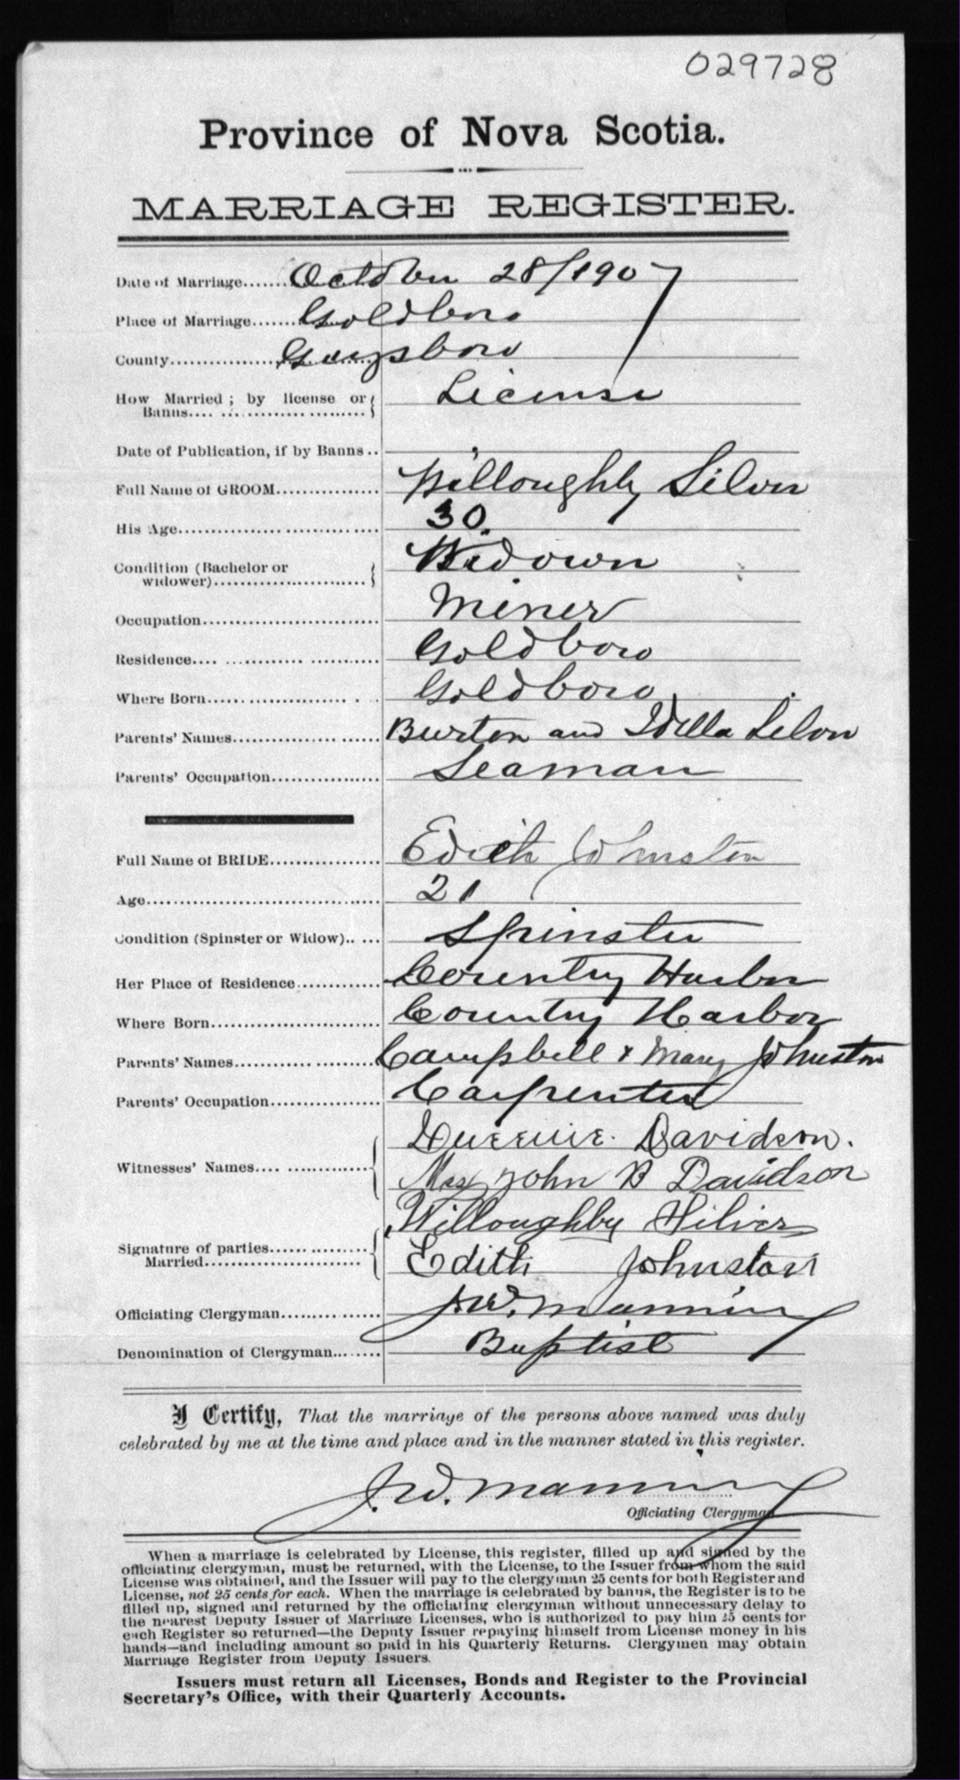 029728
Province of Nova Scotia.
MARRIAGE REGISTER.
Date of Marriage...... October 28/1907
Place of Marriage...... Goldboro
County...... Guysboro
How Married ; by license or Banns...... License
Date of Publication, if by Banns..
Full Name of GROOM...... Willoughby Silver
His Age...... 30.
Condition (Bachelor or widower)...... Widower
Occupation...... Miner
Residence...... Goldboro
Where Born...... Goldboro
Parents' Names...... Burton and Idella Silver
Parents' Occupation...... Seaman
Full Name of BRIDE...... Edith Johnston
Age...... 21
Condition (Spinster or Widow)...... Spinster
Her Place of Residence...... Country Harbor
Where Born...... Country Harbor
Parents' Names...... Campbell & Mary Johnston
Parents' Occupation...... Carpenter
Witnesses' Names...... Davidson.
John B Davidson
Signature of parties Married...... Willoughby Silver
Edith Johnston
Officiating Clergyman...... J.W. Manning
Denomination of Clergyman...... Baptist
I Certify, That the marriage of the persons above named was duly
celebrated by me at the time and place and in the manner stated in this register.
J.W. Manning
Officiating Clergyman
When a marriage is celebrated by License, this register, filled up and signed by the
officiating clergyman, must be returned, with the License, to the Issuer from whom the said
License was obtained, and the Issuer will pay to the clergyman 25 cents for both Register and
License, not 25 cents for each. When the marriage is celebrated by banns, the Register is to be
filled up, signed and returned by the officiating clergyman without unnecessary delay to
the nearest Deputy Issuer of Marriage Licenses, who is authorized to pay him 25 cents for
each Register so returned—the Deputy Issuer repaying himself from License money in his
hands—and including amount so paid in his Quarterly Returns. Clergymen may obtain
Marriage Register from Deputy Issuers.
Issuers must return all Licenses, Bonds and Register to the Provincial
Secretary's Office, with their Quarterly Accounts.